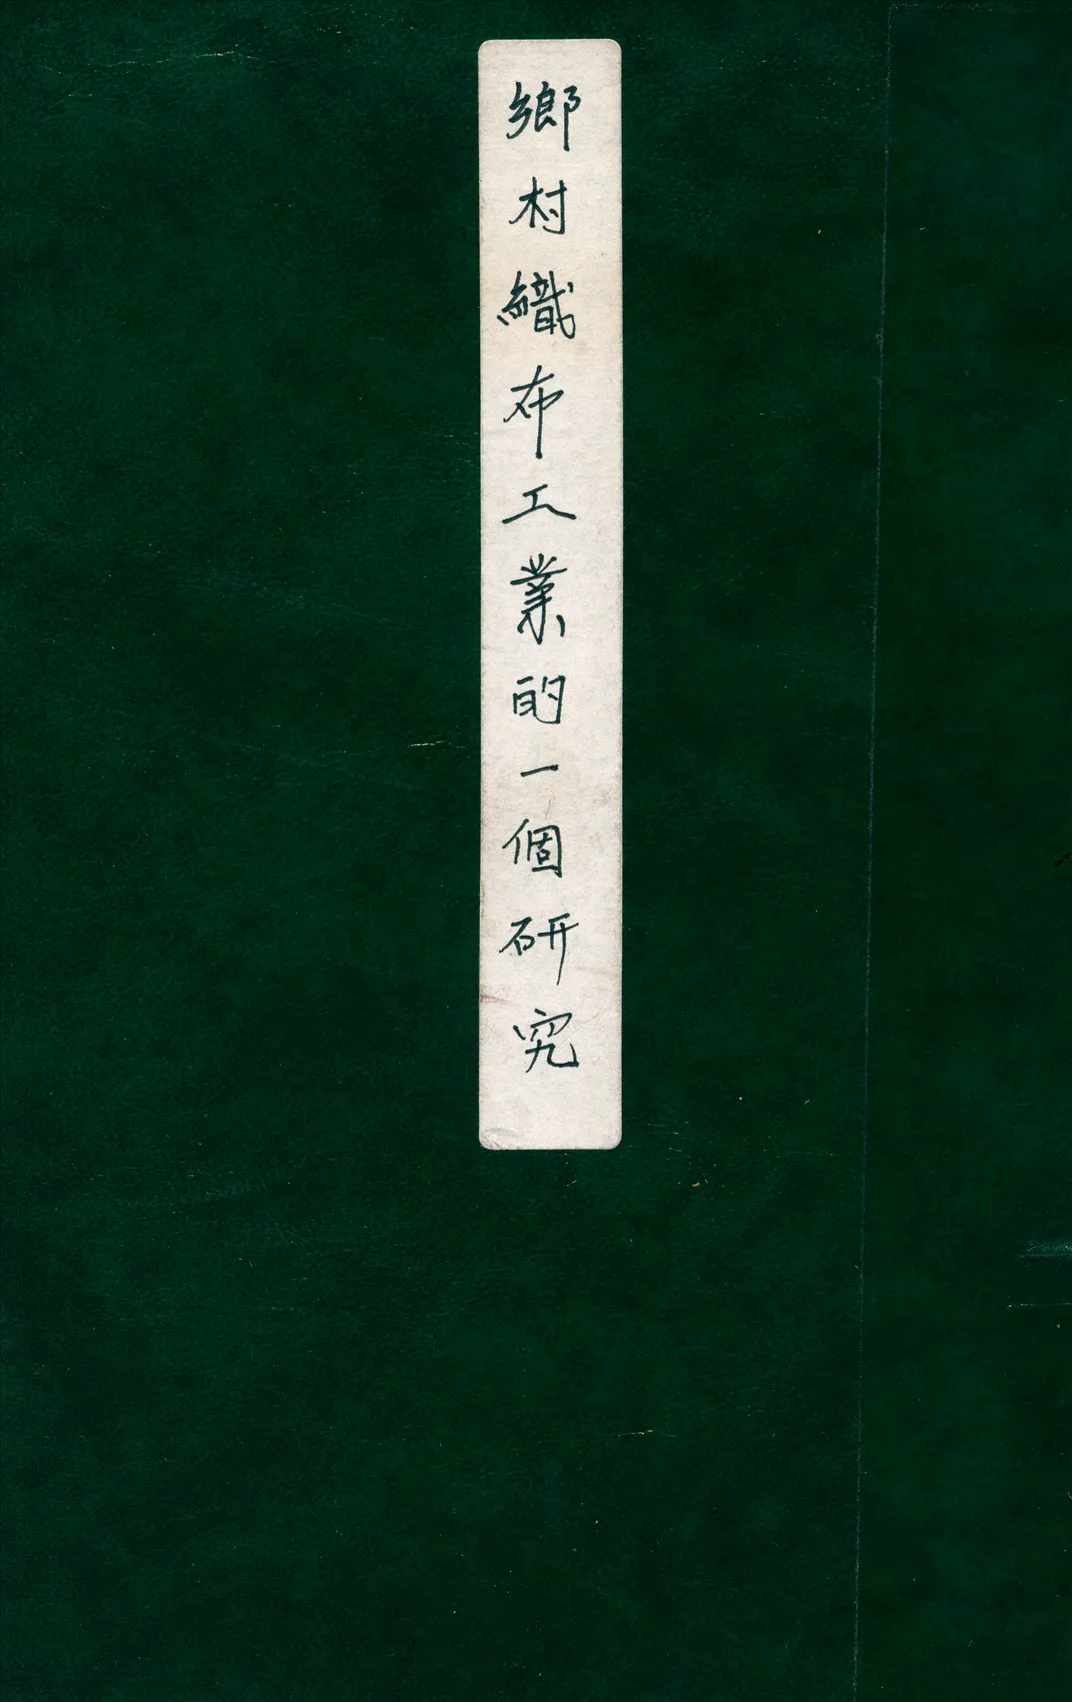 鄉村織布工業的一個研究